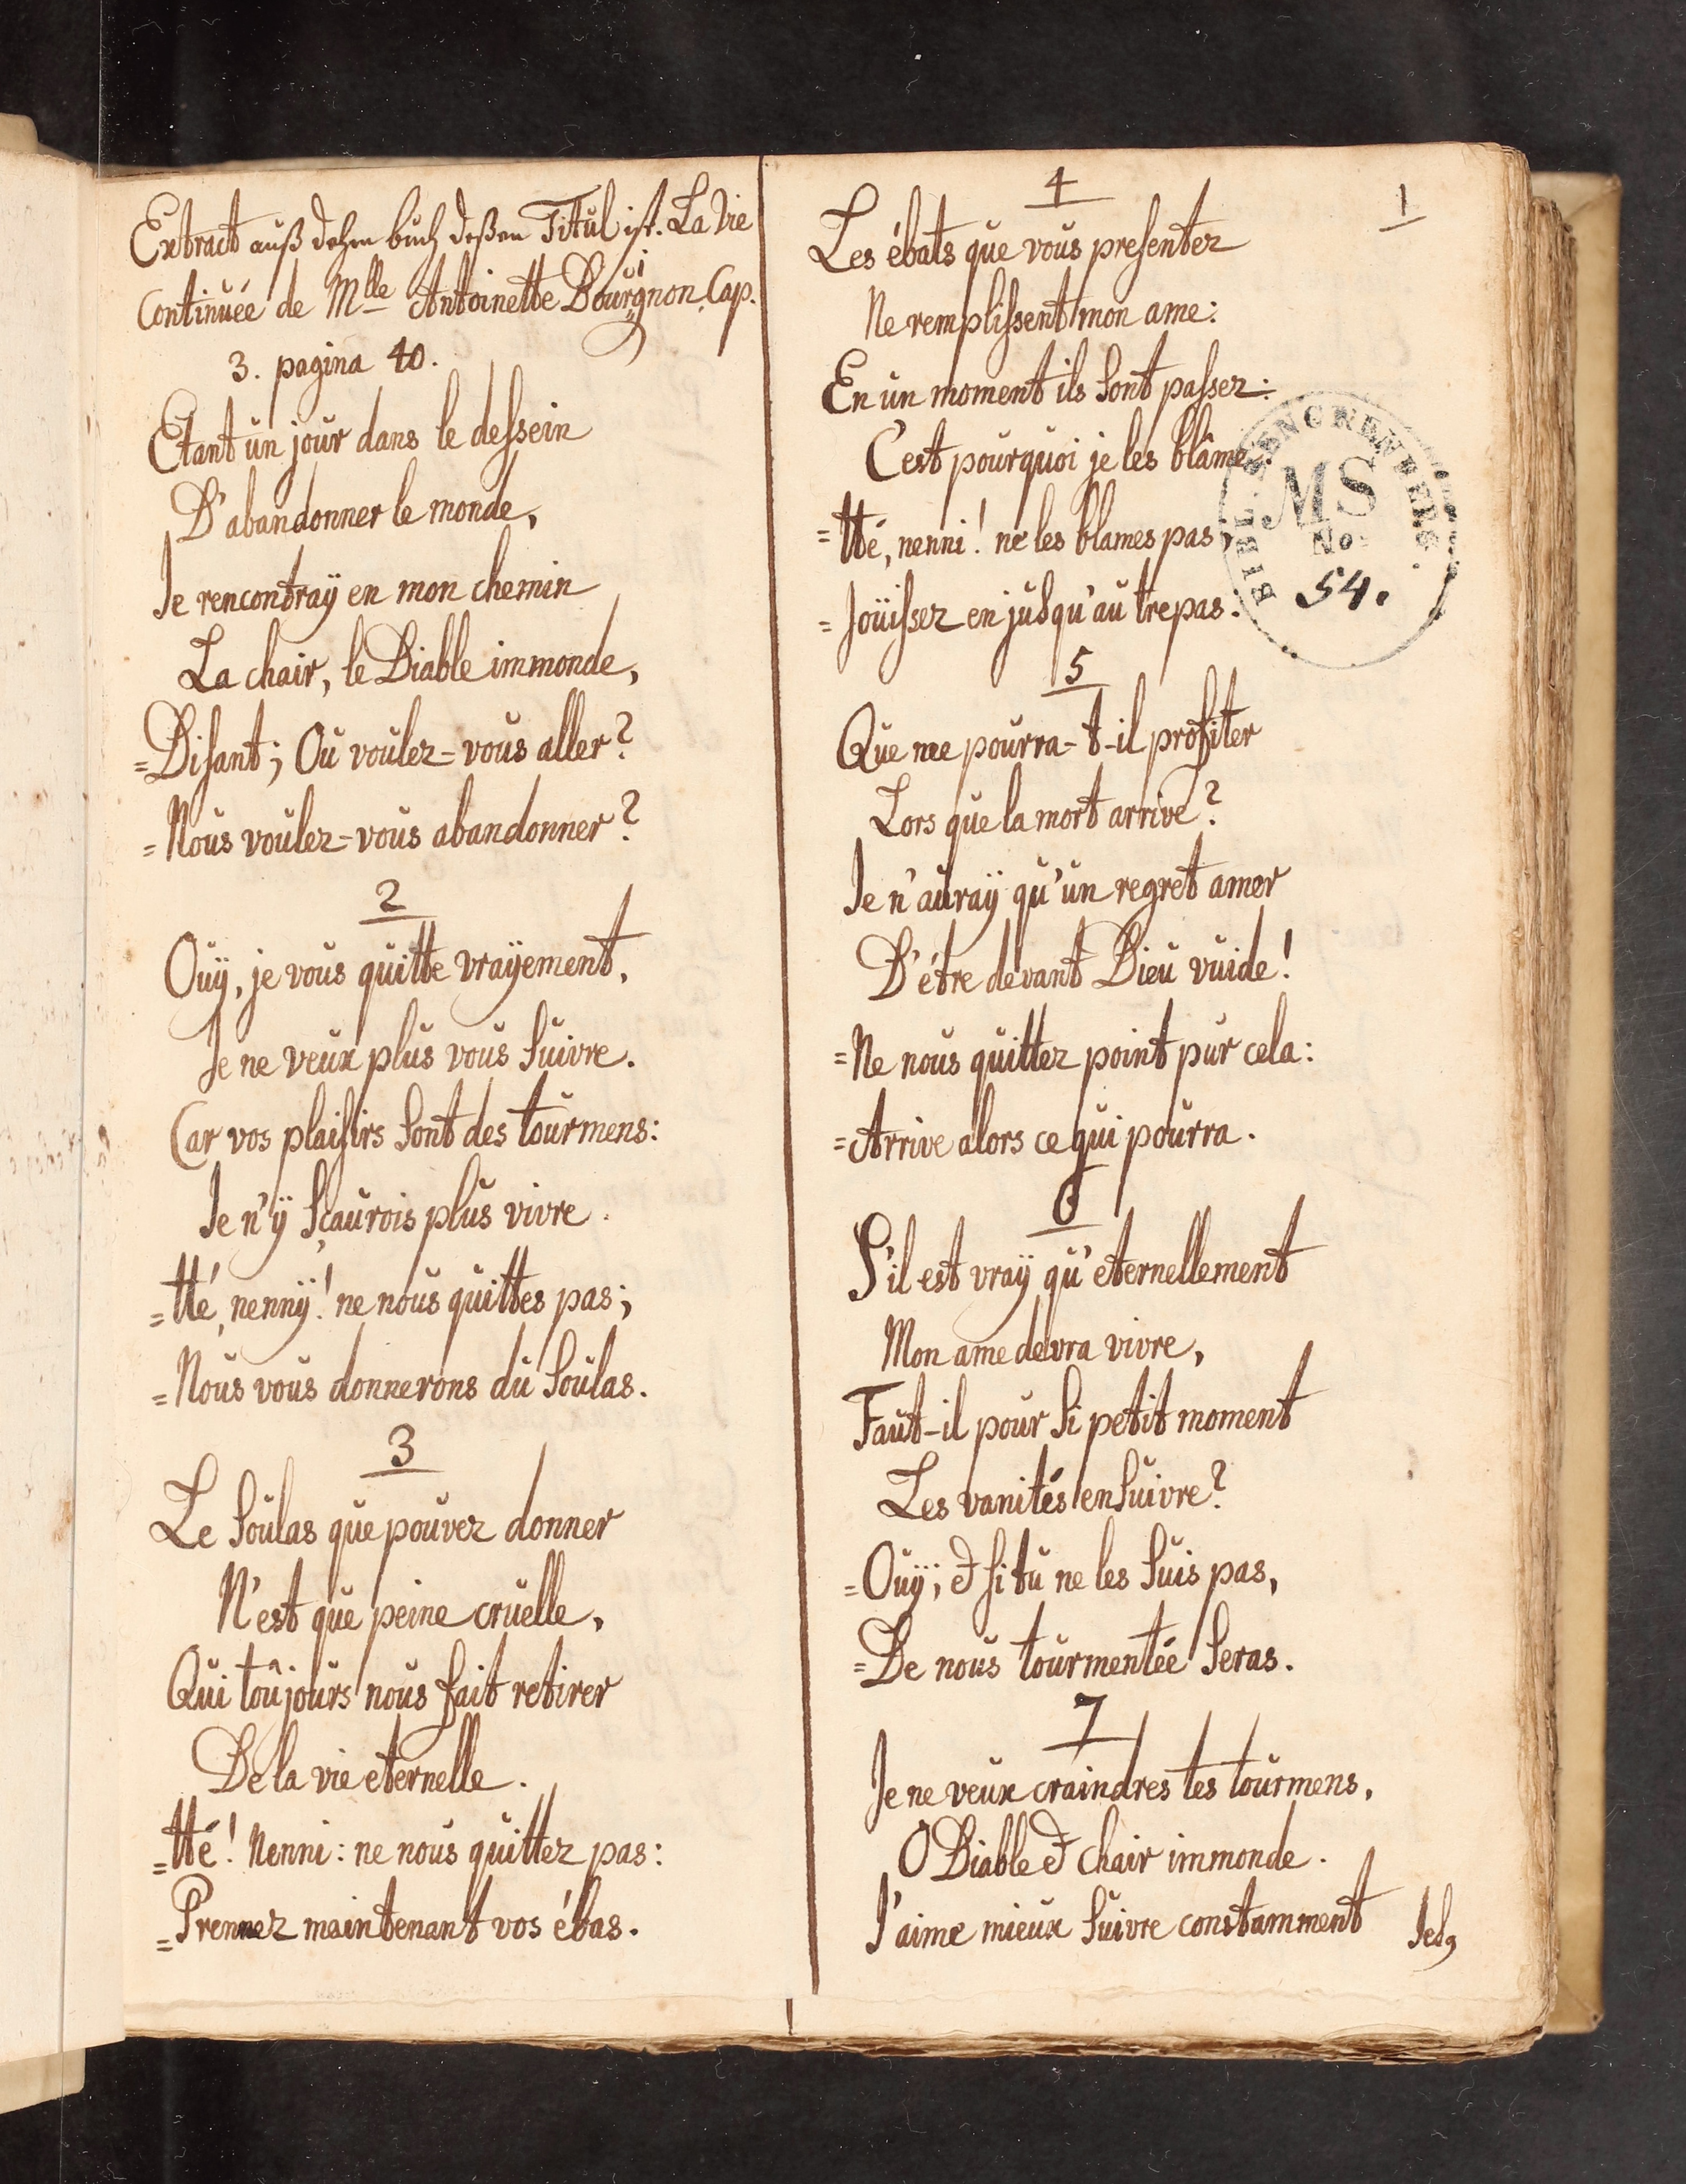 Extract auß dehm buch deßen Titul ist. La Vie
Continuée de Mlle Antoinette Bourignon. Cap.
3. pagina 40.
Etant un jour dans le dessein
D'abandonner le monde,
Je rencontraÿ en mon chemin
La chair, le Diable immonde,
=Disant; Ou voulez=vous aller?
=Nous voulez=vous abandonner?
2
Ouÿ, je vous quitte vraÿement,
Je ne veux plus vous suivre.
Car vos plaisirs sont des tourmens:
Je n'ÿ sçaurois plus vivre.
=Hé, nennÿ! ne nous quittes pas;
=Nous vous donnerons du soulas.
3
Le soulas que pouvez donner
N'est que peine cruelle,
Qui toûjours nous fait retirer
De la vie eternelle.
=Hé! Nenni: ne nous quittez pas:
=Prennez maintenant vos ébas.
1
4
Les ébats que vous presentez
Ne remplissent mon ame:
En un moment ils sont passez:
C'est pourquoi je les blâme.
=Hé, nenni! ne les blames pas,
=Joüissez en jusqu'au trepas.
5
Que me pourra-t-il profiter
Lors que la mort arrive?
Je n'auraÿ qu'un regret amer
D'étre devant Dieu vuide!
=Ne nous quittez point pur cela:
=Arrive alors ce qui pourra.
6
S'il est vraÿ qu'eternellement
Mon ame devra vivre,
Faut-il pour si petit moment
Les vanités ensuivre?
=Ouÿ; & si tu ne les suis pas,
=De nous tourmentée seras.
7
Je ne veux craindres tes tourmens,
O Diable & chair immonde.
J'aime mieux suivre constamment
MS
No:
54.